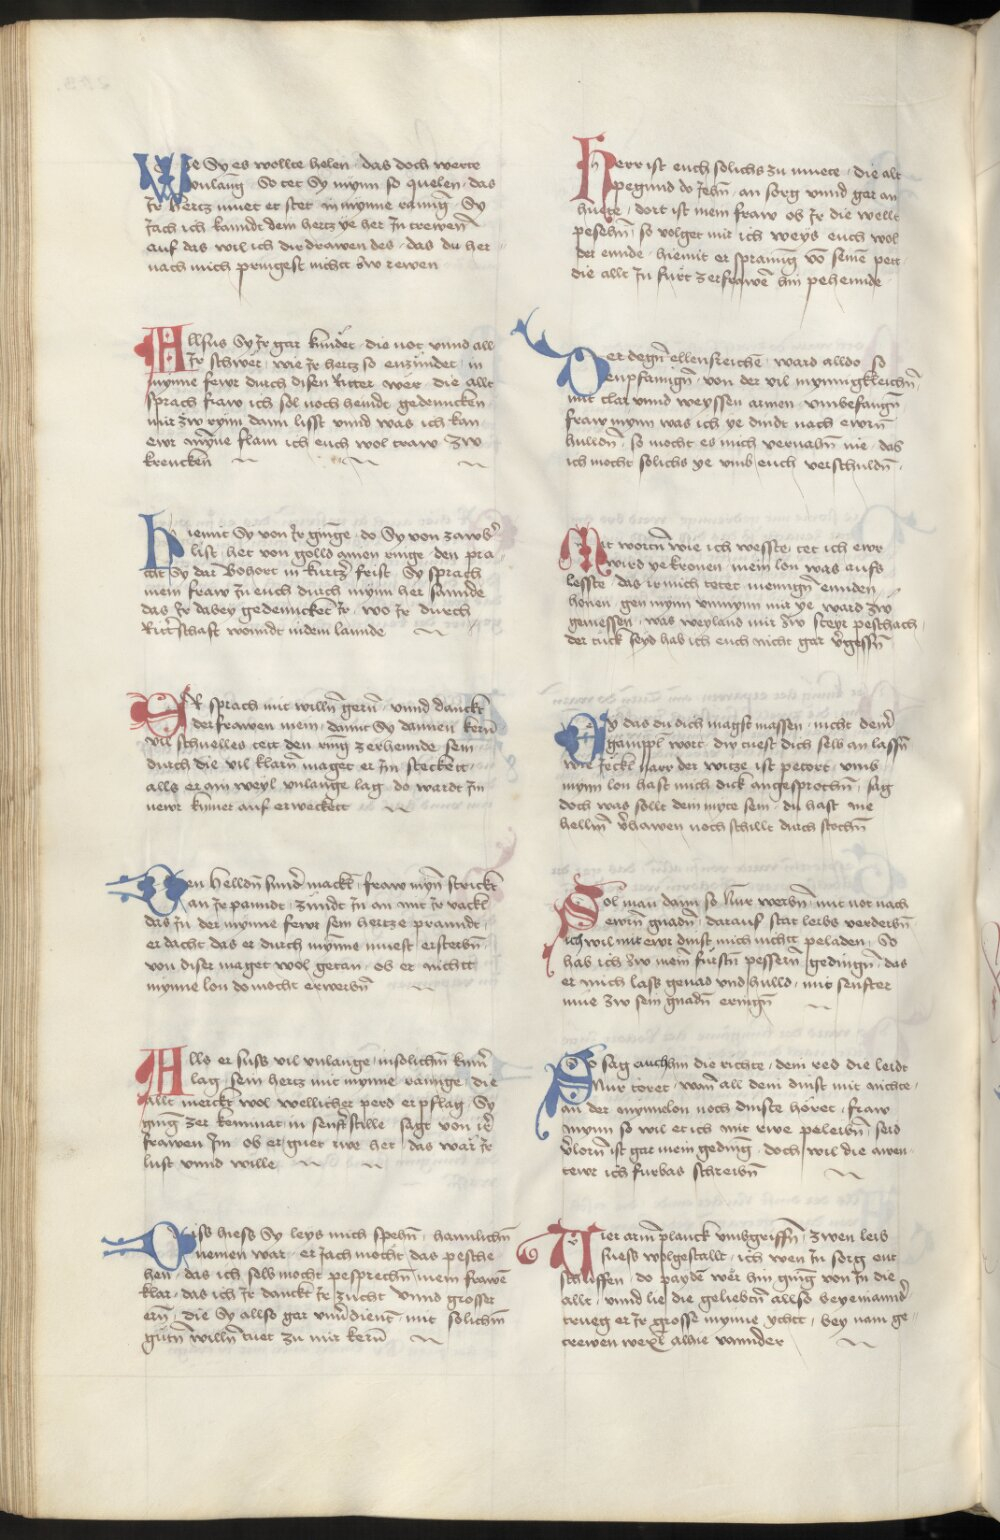 Wie Sy es wollte helen · das doch werte
vnlang · So tet Sy mynn so quelen · das
Jr hertz muet et stet in mynne rannig · Sy
Jach ich kanndt dem hertz ye her Jn trewen
auf das wil ich dir drawen des · das du her
nach mich pringest nichtt zw rewen
Allsus Sy Jr gar kundet · die not vnnd all
Jr schwer · wie Jr hertz so enzündet · in
mynne fewr durch disen Ritter wer · die allt
sprach fraw ich sol noch heindt gedenncken
mir zw dann lisst vnnd was ich kan
ewr mynne flam ich euch wol traw zw
krencken
Hiemit Sy von Jr ginge · do Sy von zawbr
list · het von golld ainen ringe · den pra
cht Sy dar Bohort in kurtzer frist · Sy sprach
mein fraw Jn euch durch mynn her sannde
das Jr dabey gedenncket Jr · wo Jr durch
Rittrschaft wonndt in dem lannde
ER sprach mit willn gern · vnnd danckt
der frawen mein · damit Sy dannen kern
vil schnelles teit den ring zerhennde sein
durch die vil klarn maget er Jm steckett
alls er ain weyl vnlange lag · do wardt Jm
newr kumer auf erweckett
Den helldn sunder mackl · fraw mynn strickt
an Jr panndt · zündt Jn an mit Jr vackl
das Jn der mynne fewr sein hertze pranndt
er dacht das er durch mynne muest ersterbn
von diser maget wol getan · ob er nichtt
mynne lon do mocht erwerbn
Alls er suss vil vnlange · in solichm kumer
lag · sein hertz mit mynne rannge · die
allt merckt wol wellicher perd er pflag · Sy
ging zer kemnat in senfter stille · sagt von ir
frawen Jm · ob er guet rwe het · das war Jr
lust vnnd wille
Diss hiess Sy leys mich spehn · haimlichn
nemen war · er Jach mocht das pesche
hen · das ich selb mocht pesprechn mein frawen
klar · das ich Jr danckt Jr zucht vnnd grosser
ern · die Sy allso gar vnuerdient · mit solichm
gutn willn tuet zu mir kern
Herr ist euch solichs zu muete · die alt
pegund do Jehn · an sorg vnnd gar an
huete · dort ist mein fraw ob Jr die wellt
pesehn · so volget mir ich weys euch wol
der ennde · hiemit er sprannng von seinem pett
die allt Jn fürt zer frawen hin pehennde
Der degn ellensreiche · ward alldo so
enpfanngn · von der vil mynnigkleichn
mit clar vnnd weyssen armen · vmbefangn
fraw mynn was ich ye dindt nach ewrn
hulldn · so mocht es mich vervahn nie · das
ich mocht solichs ye vmb euch verschuldn ·
Mit wortn wie ich wesste · tet ich ewr
wird ye kronen · mein lon was aufs
lesste · das ir mich tetet mennign ennden
honen · gen mynn vnmynn mir ye ward zw
geniessen · was weyland mir zw steyr peschach
der tück seyd hab ich euch nicht gar vergessn
Ey das du dich magst massen · nicht deinr
gampl wort · dw tuest dich selb an lassn
wie Jeckl narr der witze ist petort · vmb
mynn lon hast mich dick angesprochn · sag
doch was sollt dem myete sein · du hast nie
hellm verhawen noch schillt durch stochn
Sol man dann so Nur werbn · mit not nach
ewrn gnadn · darauf stat leibs verderbn
ich wil mit ewr dinst mich nichtt peladen · So
hab ich zw meim fürstn pessern gedingn · das
er mich lass genad vnd hulld · mit senfter
mue zw sein gnadn eringn
So sag auch hin die richte · dein red die leidt
Nur toret · wann all dein dinst mit nichte ·
an der mynnelon noch dinste höret · fraw
mynn so wil et ich mit rwe peleibn · seid
verlorn ist gar mein geding · doch wil die awen
tewr ich furbas schreibn
Vier arm planck vmbgriffn · zwen leib
suess wolgestallt · ich wen Jn sorg ent
schlieffen · do payden wer hin ging von Jn die
allt · vnnd lie die geliebtn allso beyeinannder
trueg er Jr grosse mynne ychtt · bey nam ge
trewen wexl allue vannder